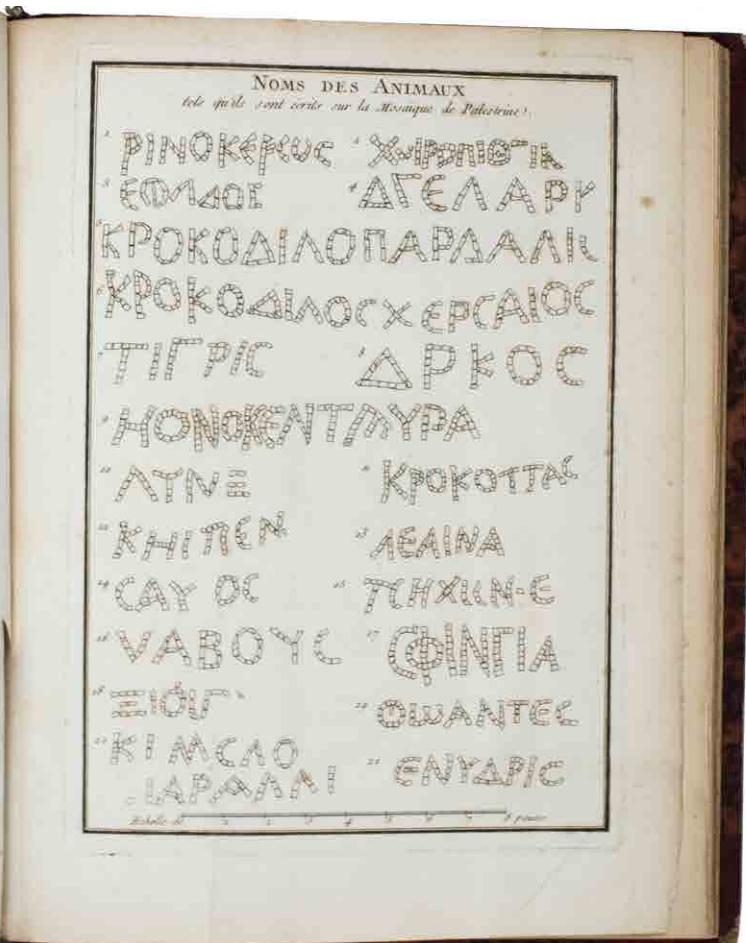 NOMS DES ANIMAUX
tels qu'ils sont écrits sur la Mosaique de Palestrine.
1 ΡΙΝΟΚΕΡΩϹ 2 ΧΩΙΡΟΠΙΘ
3 4 ΔΓΕΛΑΡΥ
5 ΚΡΟΚΟΔΙΛΟΠΑΡΔΑΛΙϹ
6 ΚΡΟΚΟΔΙΛΟϹ ΧΕΡϹΑΙΟϹ
7 ΤΙΓΡΙϹ 8 ΔΡΚΟϹ
9 ΗΟΝΟΚΕΝΤΑΥΡΑ
10 ΛΥΝΞ 11 ΚΡΟΚΟΤΤΑϹ
12 ΚΗΙΠΕΝ 13 ΛΕΑΙΝΑ
14 ϹΑΥΟϹ 15
16 ΝΑΒΟΥϹ 17 ϹΦΙΝΓΙΑ
18 ΞΙΟΙΓ 20 ΘΩΑΝΤΕϹ
ΚΙΜΕΛΟ
21 ΕΝΥΔΡΙϹ
Echelle de 1 2 3 4 5 6 7 8 pouces